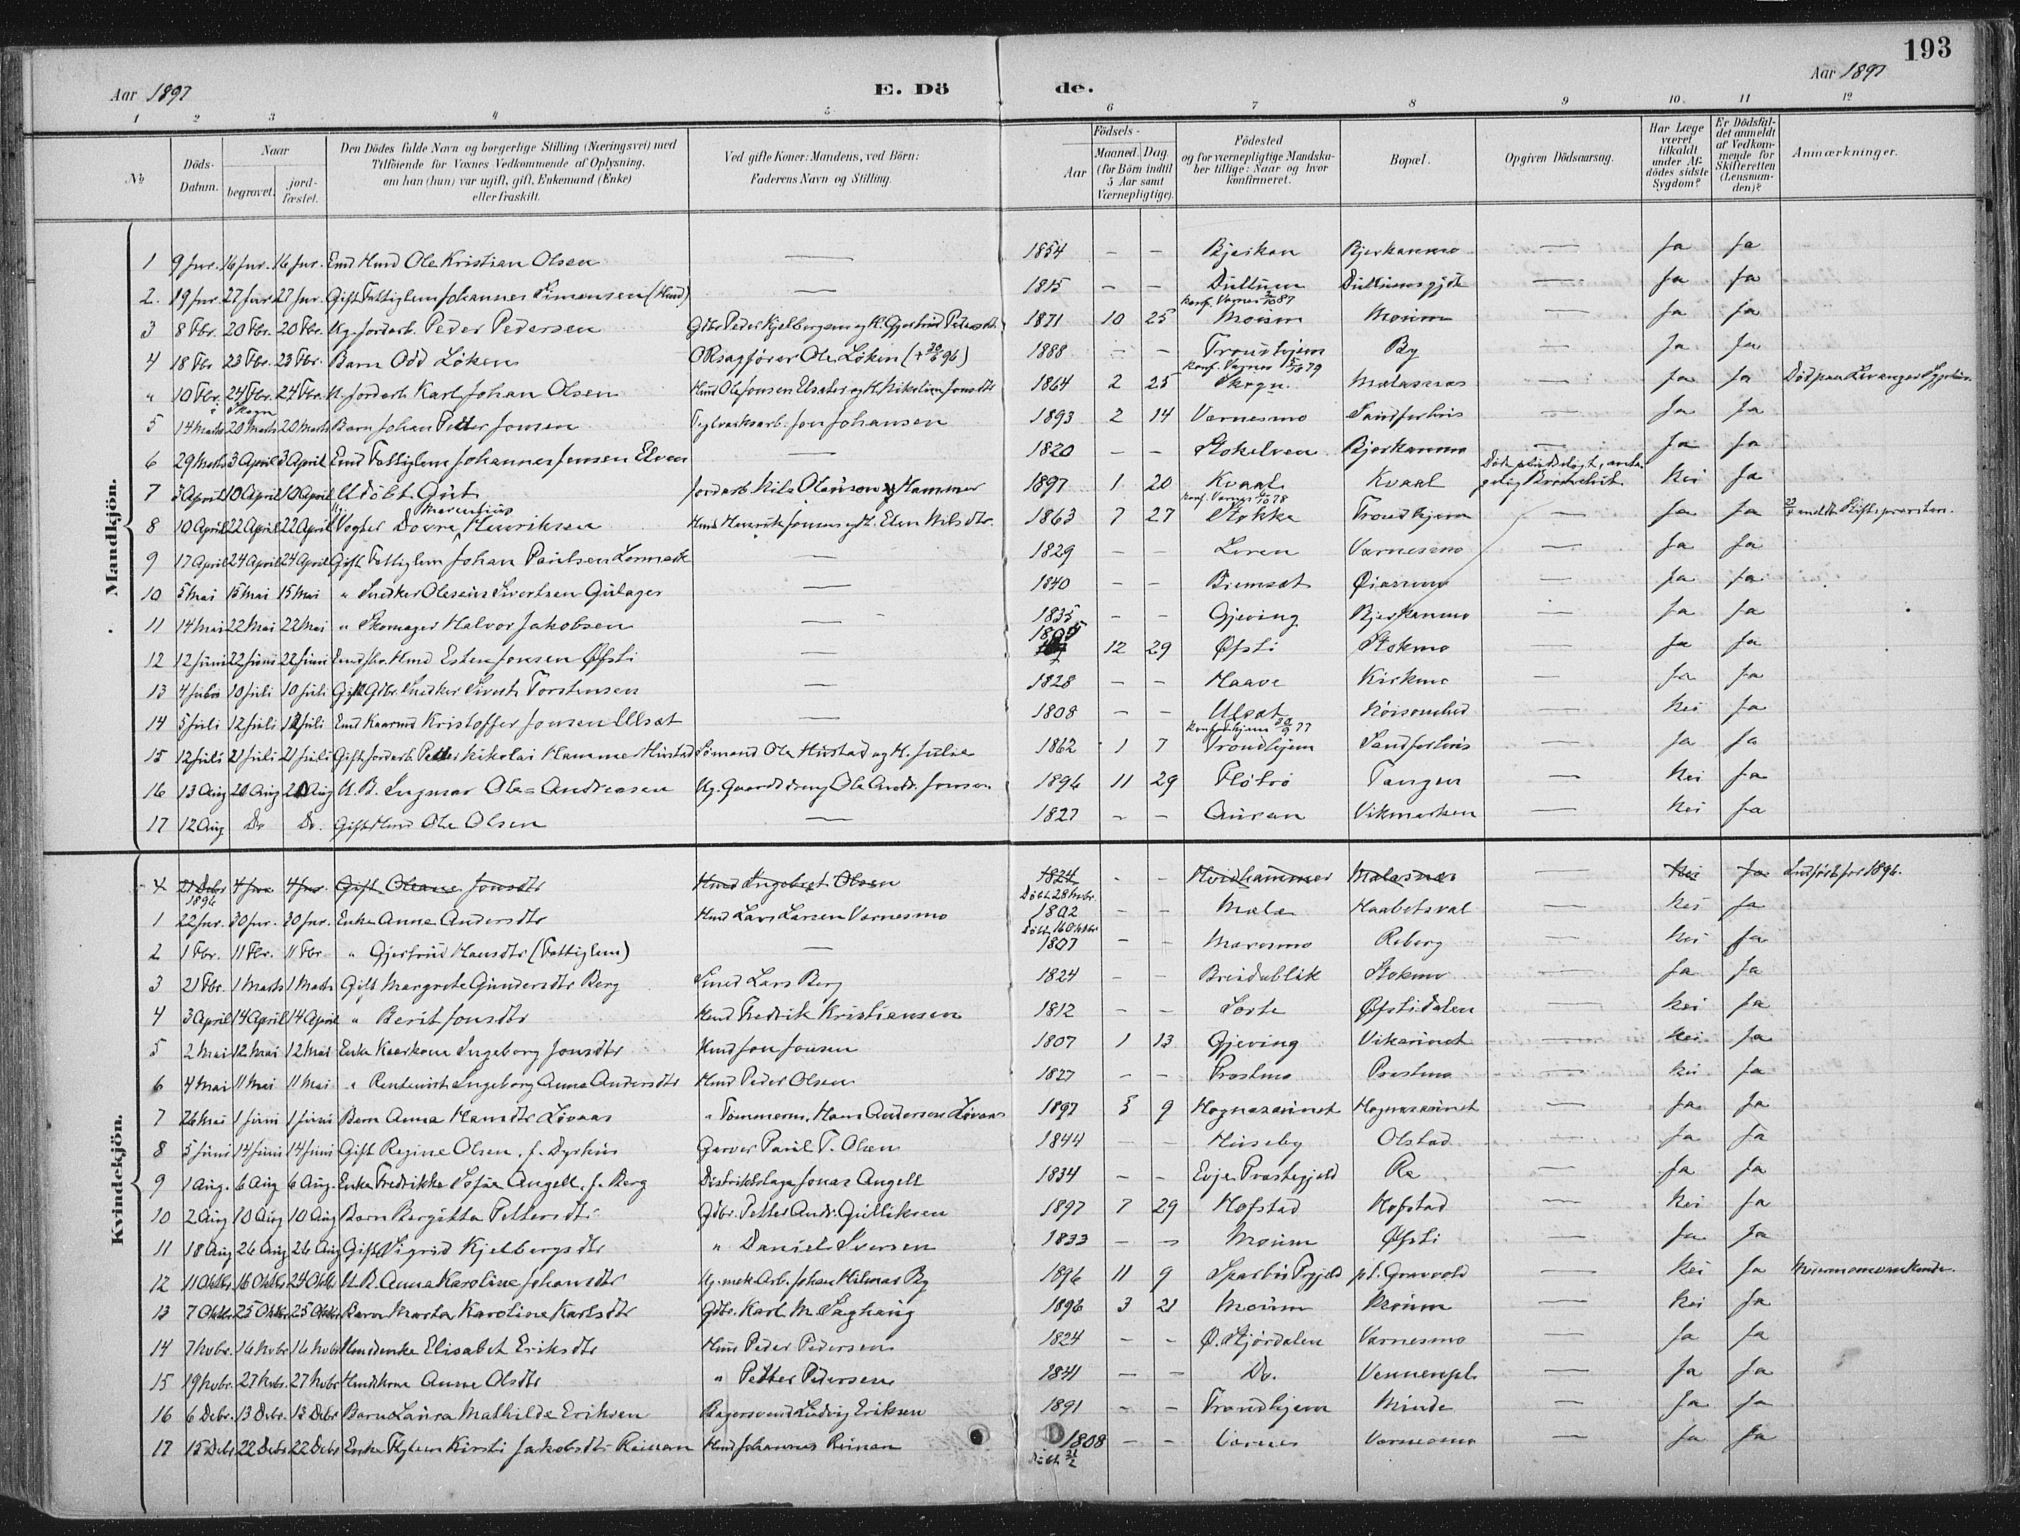 193
Aar 1897 E. Dö de. Aar 1897
1 2 3 4 5 6 7 8 9 10. 11 12
№ Döds-Datum. Naar begravet. jord-fæstet. Den Dödes fulde Navn og borgerlige Stilling (Næringsvei) med Tilföiende for Voxnes Vedkommende af Oplysning, om han (hun) var ugift, gift, Enkemand (Enke) eller fraskilt. Ved gifte Koner: Mandens, ved Börn: Faderens Navn og Stilling. Födsels- Aar Maaned. Dag. (for Börn indtil 5 Aar samt Værnepligtige). Födested og for værnepligtige Mandska-ber tillige: Naar og hvor konfirmeret. Bopæl. Opgiven Dödsaarsag. Har Læge været tilkaldt under Af-dödes sidste Sygdom? Er Dödsfal-det anmeldt af Vedkom-mende for Skifteretten (Lensman-den)? Anmærkninger.
Mandkjön.
1 9 Jnr. 16 Jnr. 16 Jnr. Emd Hmd Ole Kristian Olsen — 1854 – – Bjerkan Bjerkanmo — Ja Ja
2. 19 Jnr. 27 Jnr 27 Jnr. Gift Fattiglem Johannes Simonsen (Hmd) — 1815 – – — Ja Ja
3 8 Fbr. 20 Fbr. 20 Fbr. Ug. Jordarb. Peder Pedersen Gdbr Peder Kjelbergsen og K. Gjertrud Petersdt. 1871 10 25 Konf. Værnes 87 Moium Moium — Ja Ja
4 18 Fbr 23 Fbr. 23 Fbr. Barn Odd Löken ORsagförer Ole Löken 1888 – – Trondhjem By — Ja Ja
" 10 Fbr. 24 Fbr. 24 Fbr. U. Jordarb Karl Johan Olsen Hmd Ole Jonsen 1864 2 25 Konf. Værnes 79 Skogn. Mælasnæs — Ja Ja Död paa Levanger
i Skogn
5 14 Marts 20 Marts 20 Marts Barn Johan Petter Jonsen Teglværksarb. Jon Johansen 1893 2 14 Værnesmo Sandferhus — Ja Ja
6 29 Marts 3 April 3 April Emd Fattiglem Johannes Jensen Elven — 1820 – – Stokelven Bjerkanmo — Ja Ja
7 3 April 10 April 10 April Udöbt Gut Jordarb Nils Hammer 1897 1 20 Kvaal Kvaal Döde pludseligt, Nei Ja
8 10 April 22 April 22 April Ug. Vogter Dovre Marentius Henriksen Hmd Henrik Jonsen og H. Elen Nilsdtr. 1863 7 27 Konf. Værnes 78 Stokke Trondhjem — Ja Ja
9 17 April 24 April 24 April Gift Fattiglem Johan Paulsen — 1829 – – Leren Værnesmo — Ja Ja
10 5 Mai 15 Mai 15 Mai " Snedker Sivertsen — 1840 – – — Ja Ja
11 14 Mai 22 Mai 22 Mai " Skomager Halvor Jakobsen — 1835 – – Gjeving Bjerkanmo — Ja Ja
12 12 Juni 22 Juni 22 Juni Hmd Esten Jonsen Øfsti — 1805 12 29 Øfsti Stokmo — Ja Ja
13 4 Juli 10 Juli 10 Juli Gift Gdbr. Snedker Sivert Torstensen — 1828 – – Haave Kirkmo — Ja Ja
14 5 Juli 12 Juli 12 Juli Emd Kaarmd Kristoffer Jonsen Ulsæt — 1808 – – Ulsæt — Nei Ja
15 12 Juli 21 Juli 21 Juli Gift Jordarb Petter Nikolai Hammer Hustad Sömand Ole Hustad og H. Julie 1862 1 7 Konf. Thjem 77 Trondhjem Sandferhus — Ja Ja
16 13 Aug 20 Aug 20 Aug U. B. Ingmar Ole Andreasen Ug. Gaarddreng Ole Andr. Jonsen 1896 11 29 Flötrö Tangen — Nei Ja
17 12 Aug Do Do. Gift Hmd Ole Olsen — 1827 – – Auran Vikmarken — Nei Ja
Kvindekjön.
21 Debr 1896 4 Jnr 4 Jnr. Gift Oleane Jonsdtr Hmd Ingebret Olsen 1824 – – Hvidhammer Mælasnæs — Nei Ja Indfört for 1896.
1 22 Jnr. 30 Jnr. 30 Jnr. Enke Anne Andersdtr Hmd Lars Larsen Værnesmo Döbt 28 Nvbr. 1802 – – Mæle Haabetsval — Nei Ja
2 1 Fbr. 11 Fbr. 11 Fbr " Gjertrud Hansdtr (Fattiglem) — Döbt 16 Oktbr 1807 – – Reberg — Nei Ja
3 21 Fbr. 1 Marts 1 Marts Gift Margrete Gundersdtr Berg Smed Lars Berg 1824 – – Breidablik Stokmo — Ja Ja
4 3 April 14 April 14 April " Berit Jonsdtr Hmd Fredrik Kristiansen 1812 – – Sorte Øfstidalen — Nei Ja
5 2 Mai 12 Mai 12 Mai Enke Kaarkone Ingeborg Jonsdtr Hmd Jon Jonsen 1807 1 13 Gjeving Vikarinet — Nei Ja
6 4 Mai 11 Mai 11 Mai " Ingeborg Anna Andersdtr Hmd Peder Olsen 1827 – – Prestmo Prestmo — Nei Ja
7 26 Mai 1 Juni 1 Juni Barn Anna Hansdtr Lövaas " Tömmerm. Hans Andersen Lövaas 1897 3 9 — Ja Ja
8 5 Juni 14 Juni 14 Juni Gift Regine Olsen, f. Dyrhus Garver Paul T. Olsen 1844 – – Huseby Olstad — Ja Ja
9 1 Aug. 6 Aug 6 Aug. Enke Fredrikke Sofie Angell, f. Berg Distriktslæge Jonas Angell 1834 – – Evje Præstegjeld Re — Ja Ja
10 2 Aug 10 Aug 10 Aug Barn Bergitta Pettersdtr Gdbr. Petter Andr. Gulliksen 1897 7 29 Hofstad Hofstad — Nei Ja
11 18 Aug 26 Aug 26 Aug Gift Sigrid Kjelbergsdtr " Daniel Iversen 1833 – – Moium Øfsti — Ja Ja
12 11 Oktbr 16 Oktbr 24 Oktbr U. B. Anna Karoline Johansdtr Ug. mek Arb. Johan Hilmar By 1896 11 9 Sparbu Prgjeld — Nei Ja
13 7 Oktbr 25 Oktbr 25 Oktbr Barn Marta Karoline Karlsdtr Gdbr. Karl M. Saghaug 1896 3 21 Moium Moium — Nei Ja
14 7 Nvbr. 16 Nvbr 16 Nvbr Hmdenke Elisabet Eriksdtr Hmd Peder Pedersen 1824 – – Ø. Stjördalen Værnesmo — Ja Ja
15 19 Nvbr. 27 Nvbr. 27 Nvbr Hmdskone Anne Olsdtr " Petter Pedersen 1841 – – Do. — Ja Ja
16 6 Debr. 13 Debr. 13 Debr Barn Laura Mathilde Eriksen Bagersvend Ludvig Eriksen 1891 – – Trondhjem Minde — Ja Ja
17 15 Debr 22 Debr 22 Debr Enke Kirsti Jakobsdtr Reinan Hmd Johannes Reinan 1808 – – Værnes Værnesmo — Ja Ja
Döbt 21/2